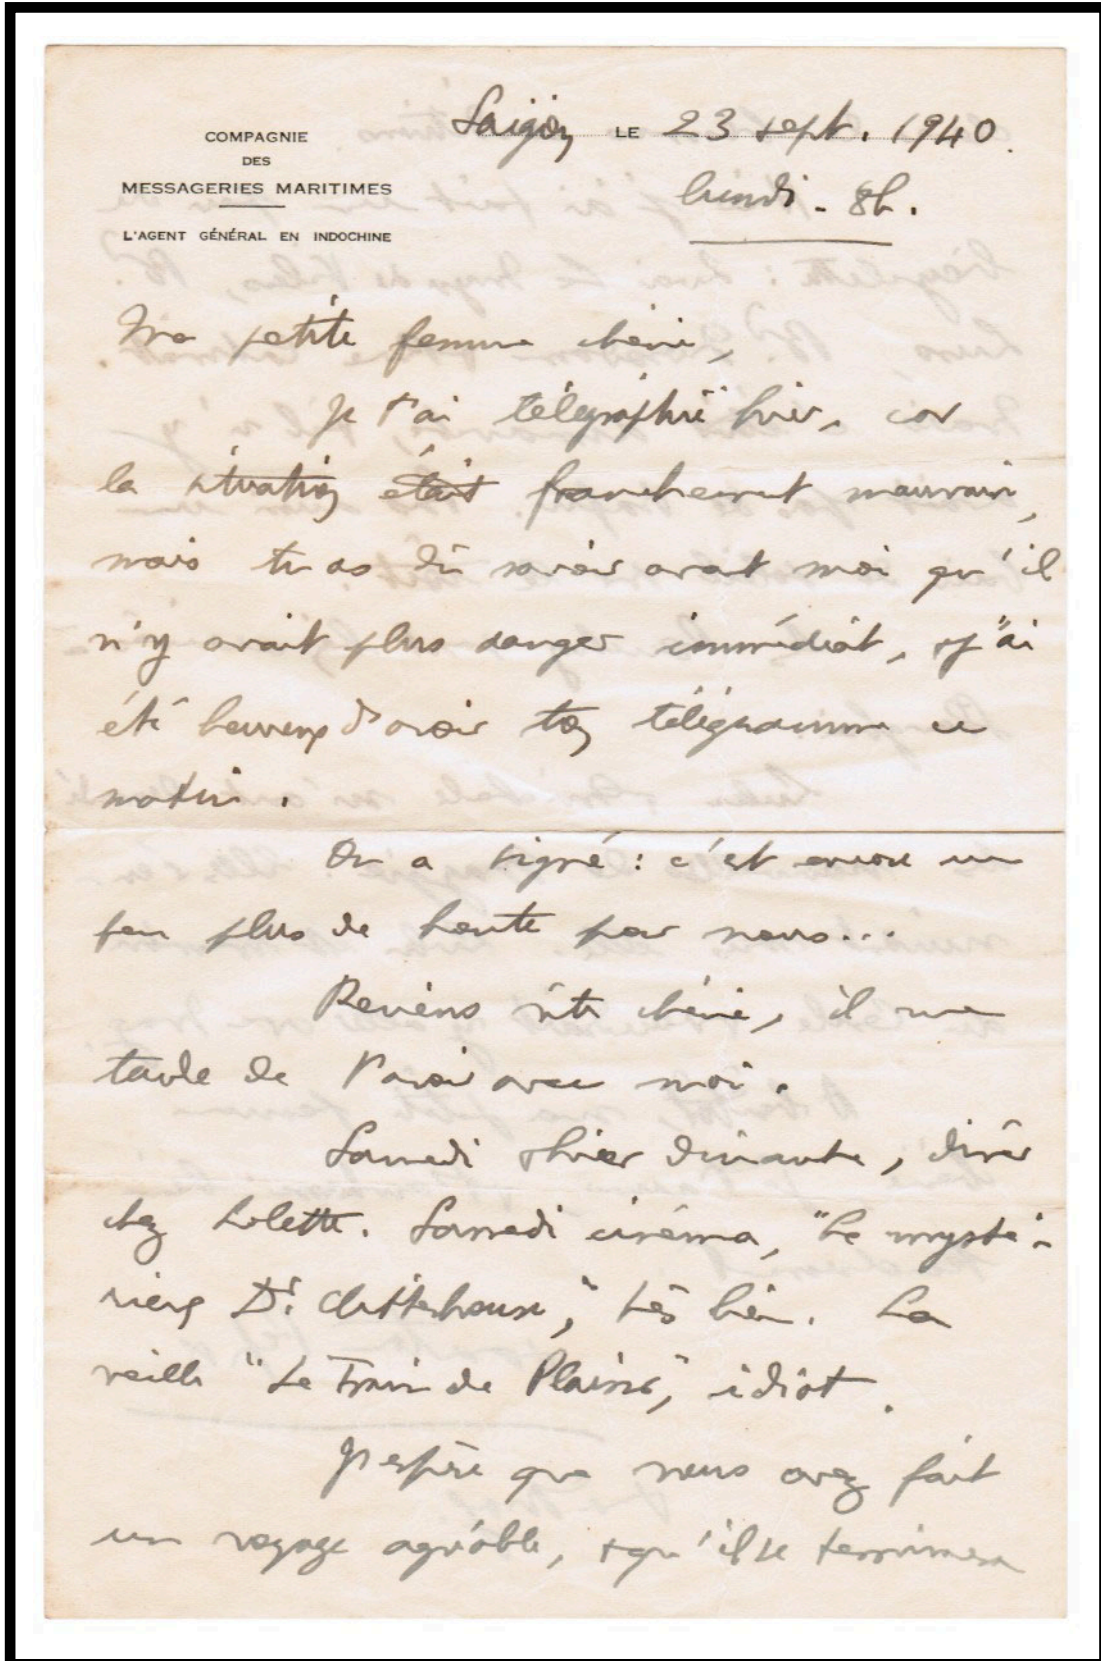 COMPAGNIE
DES
MESSAGERIES MARITIMES
L'AGENT GÉNÉRAL EN INDOCHINE
Saigon LE 23 sept. 1940.
lundi - 8h.
Ma petite femme chérie,
Je t'ai télégraphié hier, car
la situation était franchement mauvaise,
mais tu as dû savoir avant moi qu'il
n'y avait plus danger immédiat, & j'ai
été heureux d'avoir ton télégramme ce
matin.
On a signé : c'est encore un
peu plus de honte pour nous...
Reviens vite chérie, il me
tarde de t'avoir avec moi.
Samedi & hier dimanche, dîner
chez Lolette. Samedi cinéma, "Le mysté-
rieux Dr. Clitterhouse", très bien. La
veille "Le Train de Plaisir", idiot.
J'espère que vous avez fait
un voyage agréable, & qu'il se terminera